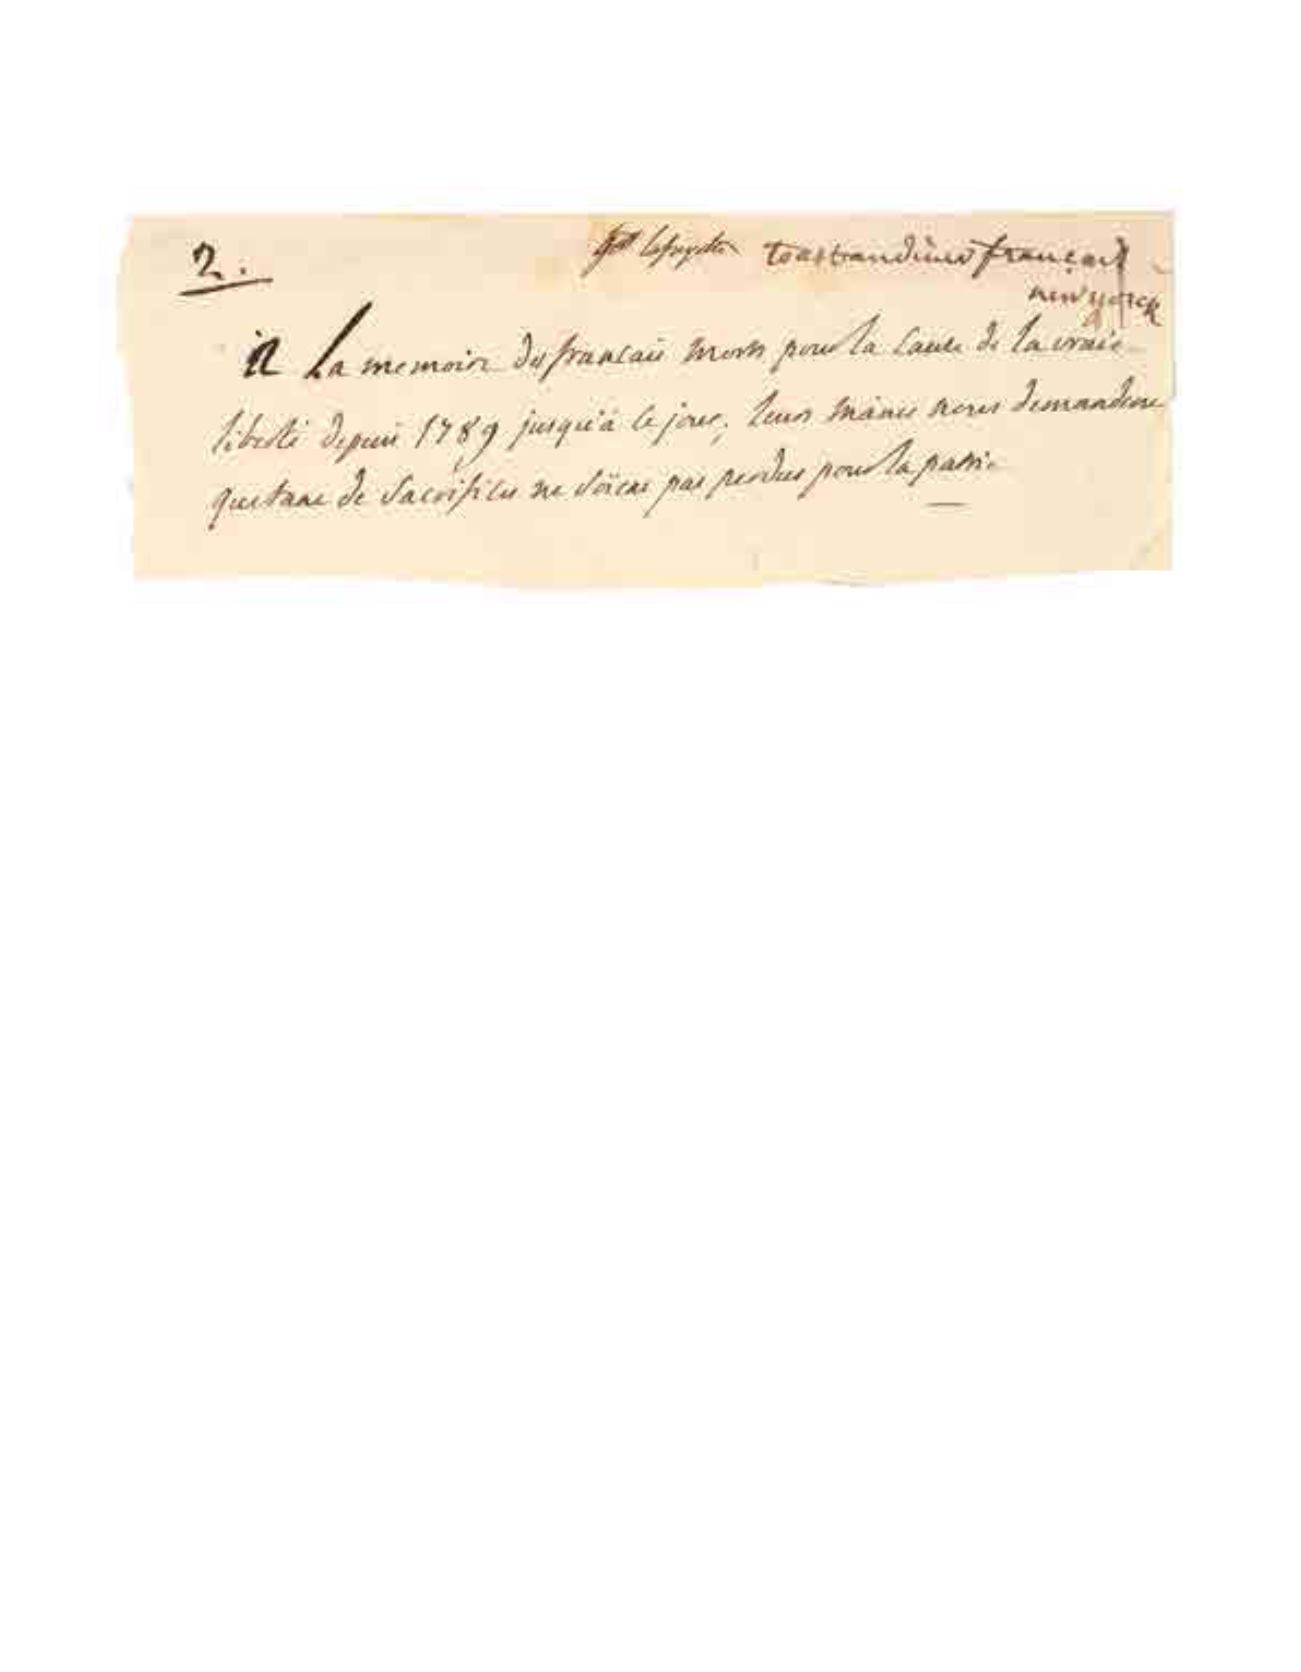 2. g^al lafayette toast au diner français
new yorck
A La memoire des francais morts pour la cause de la vraie
liberté depuis 1789 jusqu'à ce jour, leurs mânes nous demandent
que tant de sacrifices ne soient pas perdus pour la patrie